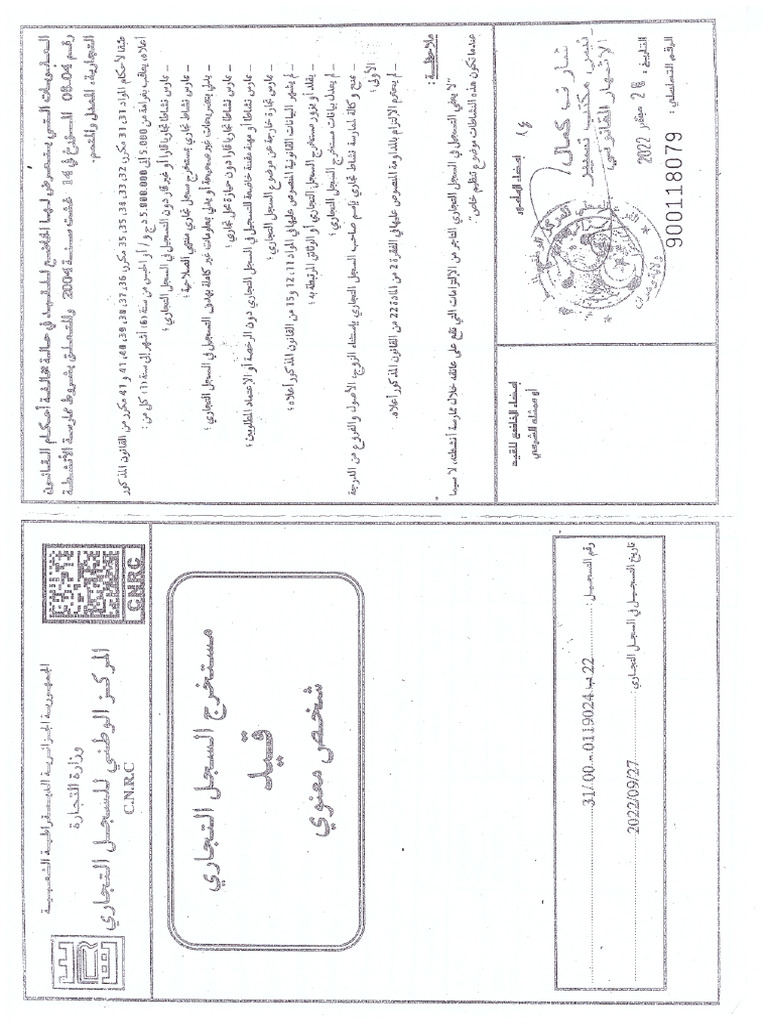 الجمهورية الجزائرية الديمقراطية الشعبية
وزارة التجارة
المركز الوطني للسجل التجاري
C.N.R.C
CNRC
مستخرج السجل التجاري
قيد
شخص معنوي
رقم التسجيل :
31/00-0119024 ب 22
تاريخ التسجيل في السجل التجاري :
2022/09/27
العقوبات التي يتعرض لها الخاضع للقيد في حالة مخالفة أحكام القانون
رقم 08.04 المؤرخ في 14 غشت سنة 2004 والمتعلق بشروط ممارسة الأنشطة
التجارية، المعدل والمتمم.
طبقا لأحكام المواد 31، 31 مكرر، 32، 33، 34، 35، 35 مكرر، 36، 37، 38، 39، 40، 41 و 41 مكرر من القانون المذكور
أعلاه، يعاقب بغرامة من 5.000 إلى 5.000.000 دج و / أو الحبس من ستة (6) أشهر إلى سنة (1) كل من :
- مارس نشاطا تجاريا قارا أو غير قار دون التسجيل في السجل التجاري ؛
- مارس نشاط تجاري بمستخرج سجل تجاري منتهي الصلاحية ؛
- يدلي بتصريحات غير صحيحة أو يدلي بمعلومات غير كاملة بهدف التسجيل في السجل التجاري ؛
- مارس نشاطا تجاريا قارا دون حيازة محل تجاري ؛
- مارس نشاطا أو مهنة مقننة خاضعة للتسجيل في السجل التجاري دون الرخصة أو الإعتماد المطلوبين ؛
- مارس تجارة خارجة عن موضوع السجل التجاري ؛
- لم يشهر البيانات القانونية المنصوص عليها في المواد 11، 12 و 15 من القانون المذكور أعلاه ؛
- يقلد أو يزور مستخرج السجل التجاري أو الوثائق المرتبطة به ؛
- لم يعدل بيانات مستخرج السجل التجاري ؛
- يمنح وكالة لممارسة نشاط تجاري بإسم صاحب السجل التجاري بإستثناء الزوج، الأصول والفروع من الدرجة
الأولى ؛
- لم يحترم الإلتزام بالمداومة المنصوص عليها في الفقرة 2 من المادة 22 من القانون المذكور أعلاه.
ملاحظة :
"لا يعفي التسجيل في السجل التجاري التاجر من الإلتزامات التي تقع على عاتقه خلال ممارسة أنشطته، لا سيما
عندما تكون هذه النشاطات موضوع تنظيم خاص".
إمضاء الخاضع للقيد
أو ممثله الشرعي
إمضاء المأمور
التاريخ : 28 سبتمبر 2022
الرقم التسلسلي : 900118079